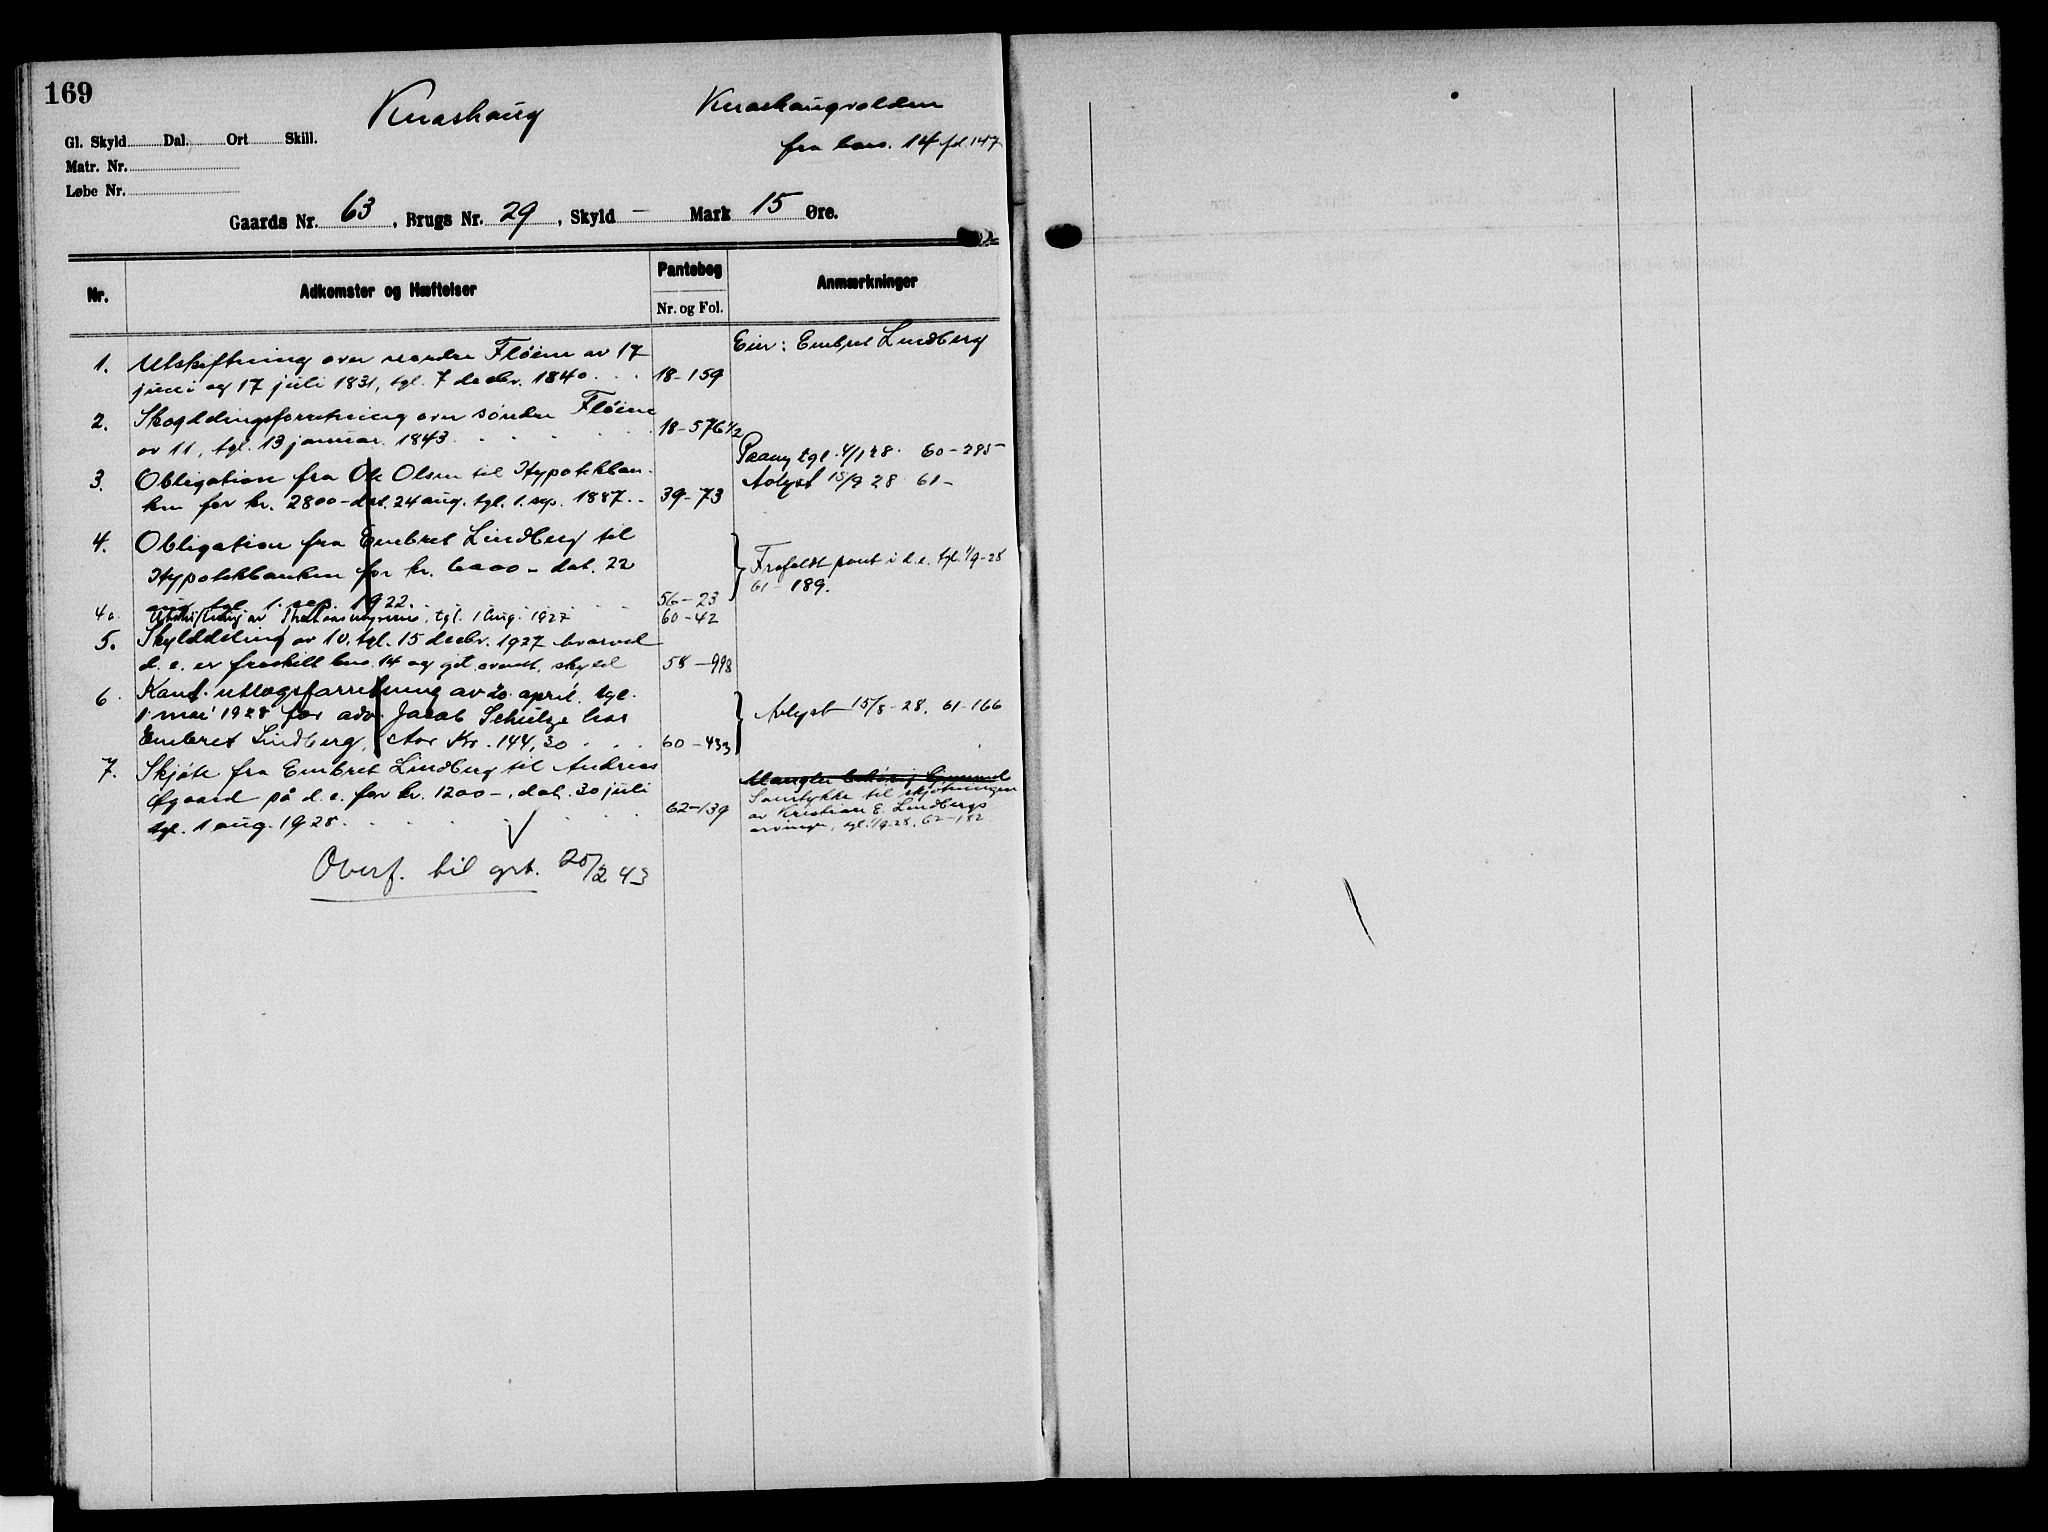 169
Knashaug
Knashaugvolden
fra brns. 14 fol. 147
Gl. Skyld Dal. Ort Skill.
Matr. Nr.
Løbe Nr.
Gaards Nr. 63, Brugs Nr. 29, Skyld — Mark 15 Øre.
Nr. Adkomster og Hæftelser Pantebog Anmærkninger
Nr. og Fol.
Eier: Embret Lindberg
1. Utskiftning over nordre Fløine av 17
juni og 17 juli 1831, tgl. 7 decbr. 1840 . . . 18-159
2. Skogdelingsforretning over søndre Fløine
av 11, tgl. 13 januar 1843 . . . . . 18-576 1/2
3. Obligation fra Ole Olsen til Hypotekban-
ken for kr. 2800- dat. 24 aug. tgl. 1. sep. 1887. . 39-73
Paany tgl. 4/1 28. 60-285
Avlyst 15/9 28 61-
4. Obligation fra Embret Lindberg til
Hypotekbanken for kr. 6000- dat. 22
aug. tgl. 1. sep. 1922. . . . 56-23
Frafaldt pant i d.e. tgl. 1/9-28
61-189.
4a. Utskiftning av tgl. 1 aug. 1927 60-42
5. Skylddeling av 10. tgl. 15 decbr. 1927 hvorved
d. e. er fraskilt bns. 14 og git ovennt. skyld 58-998
6. utlægsforretning av 20. april. tgl.
1 mai 1928 for adv. Jacob Schulze hos
Embret Lindberg, stor Kr. 144,30 . . . . 60-433
Avlyst 15/8-28. 61-166
7. Skjøte fra Embret Lindberg til Andreas
Øgaard på d. e. for kr. 1200-, dat. 30 juli
tgl. 1 aug. 1928. . . . . . . 62-139
Mangler
Samtykke til skjøtningen
av Kristian E. Lindbergs
arvinger, tgl. 1/9-28, 62-182
Overf. til grb. 25/2 43